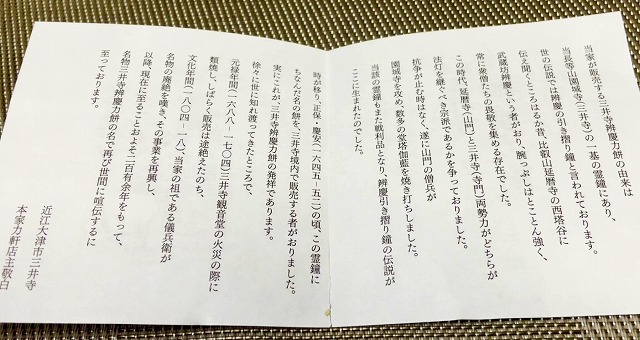 当家が販売する三井寺辨慶力餅の由来は
当長等山園城寺(三井寺)の一基の霊鐘にあり、
世の伝説では辨慶の引き摺り鐘と言われております。
伝え聞くところはるか昔、比叡山延暦寺の西塔谷に
武蔵坊辨慶という者がおり、腕っぷしはとことん強く、
常に衆僧たちの畏敬を集める存在でした。
この時代、延暦寺(山門)と三井寺(寺門)両勢力がどちらが
法灯を継ぐべき宗派であるかを争っておりました。
抗争が止む時はなく、遂に山門の僧兵が
園城寺を攻め、数多の堂塔伽藍を焼き打ちしました。
当該の霊鐘もまた戦利品となり、辨慶引き摺り鐘の伝説が
ここに生まれたのでした。
時が移り、正保・慶安(一六四五–五二)の頃、この霊鐘に
ちなんだ名の餅を、三井寺境内で販売する者がおりました。
実にこれが、三井寺辨慶力餅の発祥であります。
徐々に世に知れ渡ってきたところで、
元禄年間(一六八八–一七〇四)三井寺観音堂の火災の際に
類焼し、しばらく販売は途絶えたのち、
文化年間(一八〇四–一八)当家の祖である儀兵衛が
名物の廃絶を嘆き、その事業を再興し、
以降、現在に至ることおよそ二百有余年をもって、
名物三井寺辨慶力餅の名で再び世間に喧伝するに
至っております。
近江大津市三井寺
本家力軒店主敬白